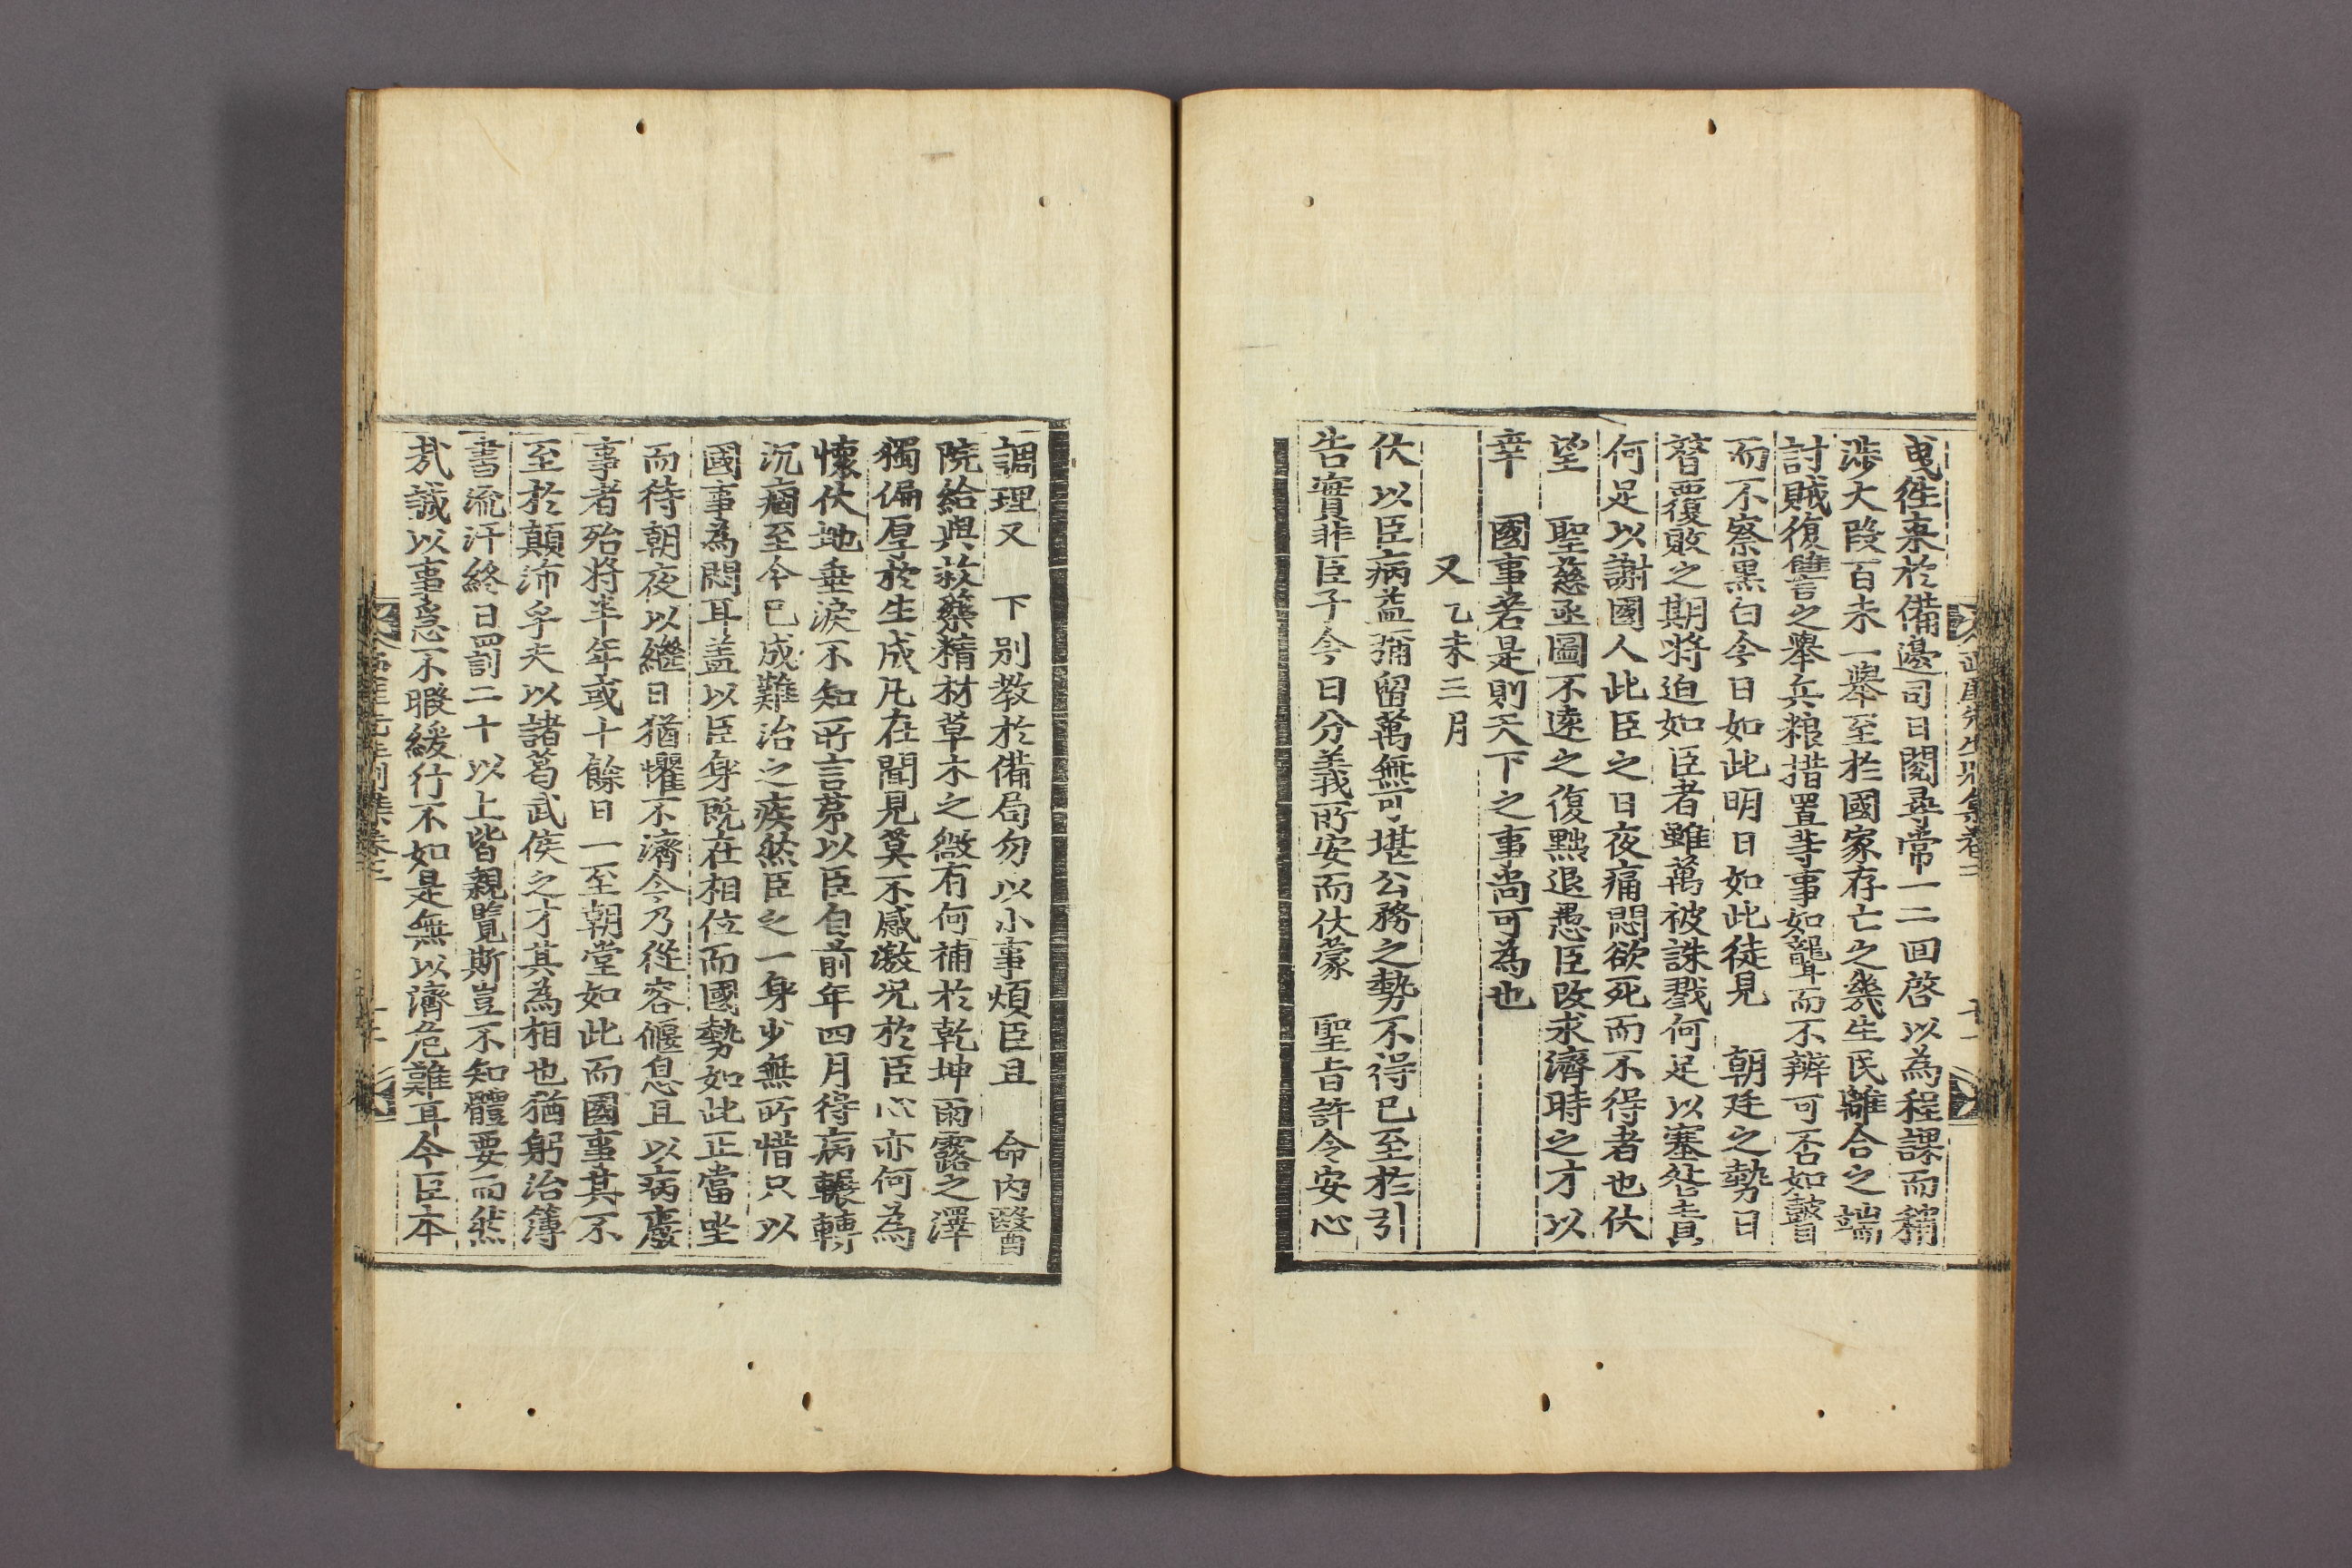 曳徃來於備邊司日閱尋常一二回啓以為程課而稱
涉大段百未一擧至於國家存亡之幾生民離合之端
討賊復讐之擧兵粮措置等事如聾耳而不辨可否如瞽目
而不察黑白今日如此明日如此徒見 朝廷之勢日
瞀覆敗之期將迫如臣者雖萬被誅戮何足以塞咎責
何足以謝國人此臣之日夜痛悶欲死而不得者也伏
望 聖慈亟圖不遠之復黜退愚臣改求濟時之才以
幸 國事若是則天下之事尚可為也
又 乙未三月
伏以臣病益彌留萬無可堪公務之勢不得已至於引
告實非臣子今日分義所安而伏蒙 聖旨許令安心
調理又 下別教於備局勿以小事煩臣且 命內醫
院給與蔘藥精材草木之微有何補於乾坤雨露之澤
獨偏厚於生成凡在聞見莫不感激况於臣心亦何為
懷伏地垂淚不知所言第以臣自前年四月得病輾轉
沉痼至今已成難治之疾然臣之一身少無所惜只以
國事為悶耳盖以臣身旣在相位而國勢如此正當坐
而待朝夜以繼日猶懼不濟今乃從容偃息且以病廢
事者殆將半年或十餘日一至朝堂如此而國事其不
至於顛沛乎夫以諸葛武侯之才其為相也猶躬治簿
書流汗終日罰二十以上皆親覽斯豈不知體要而然
㢤誠以事急不暇緩行不如是無以濟危難耳今臣本